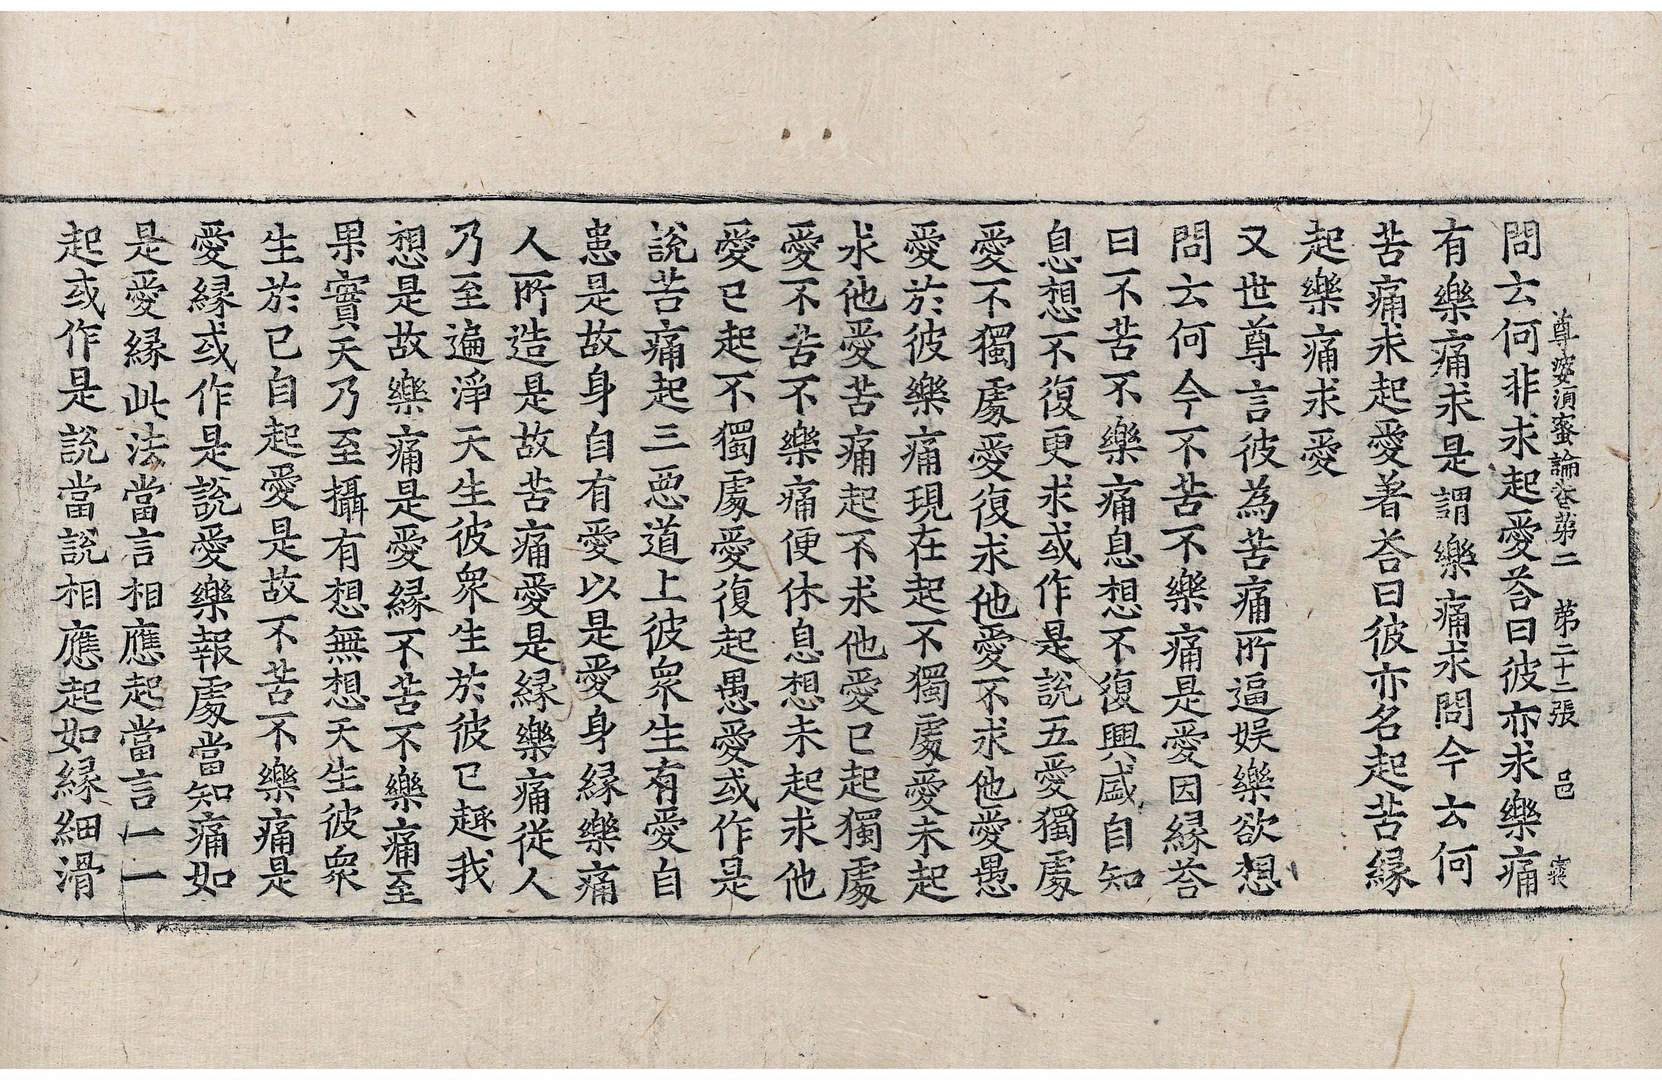 尊婆湏蜜論卷第二　第二十二張　邑
問云何非求起愛荅曰彼亦求樂痛
有樂痛求是謂樂痛求問今云何
苦痛求起愛著荅曰彼亦名起苦緣
起樂痛求愛
又世尊言彼為苦痛所逼娛樂欲想
問云何今不苦不樂痛是愛因緣荅
曰不苦不樂痛息想不復興盛自知
息想不復更求或作是說五愛獨處
愛不獨處愛復求他愛不求他愛愚
愛於彼樂痛現在起不獨處愛未起
求他愛苦痛起不求他愛已起獨處
愛不苦不樂痛便休息想未起求他
愛已起不獨處愛復起愚愛或作是
說苦痛起三惡道上彼衆生有愛自
恚是故身自有愛以是愛身緣樂痛
人所造是故苦痛愛是緣樂痛從人
乃至遍淨天生彼衆生於彼已趣我
想是故樂痛是愛緣不苦不樂痛至
果實天乃至攝有想無想天生彼衆
生於已自起愛是故不苦不樂痛是
愛緣或作是說愛樂報處當知痛如
是愛緣此法當言相應起當言一一
起或作是說當說相應起如緣細滑